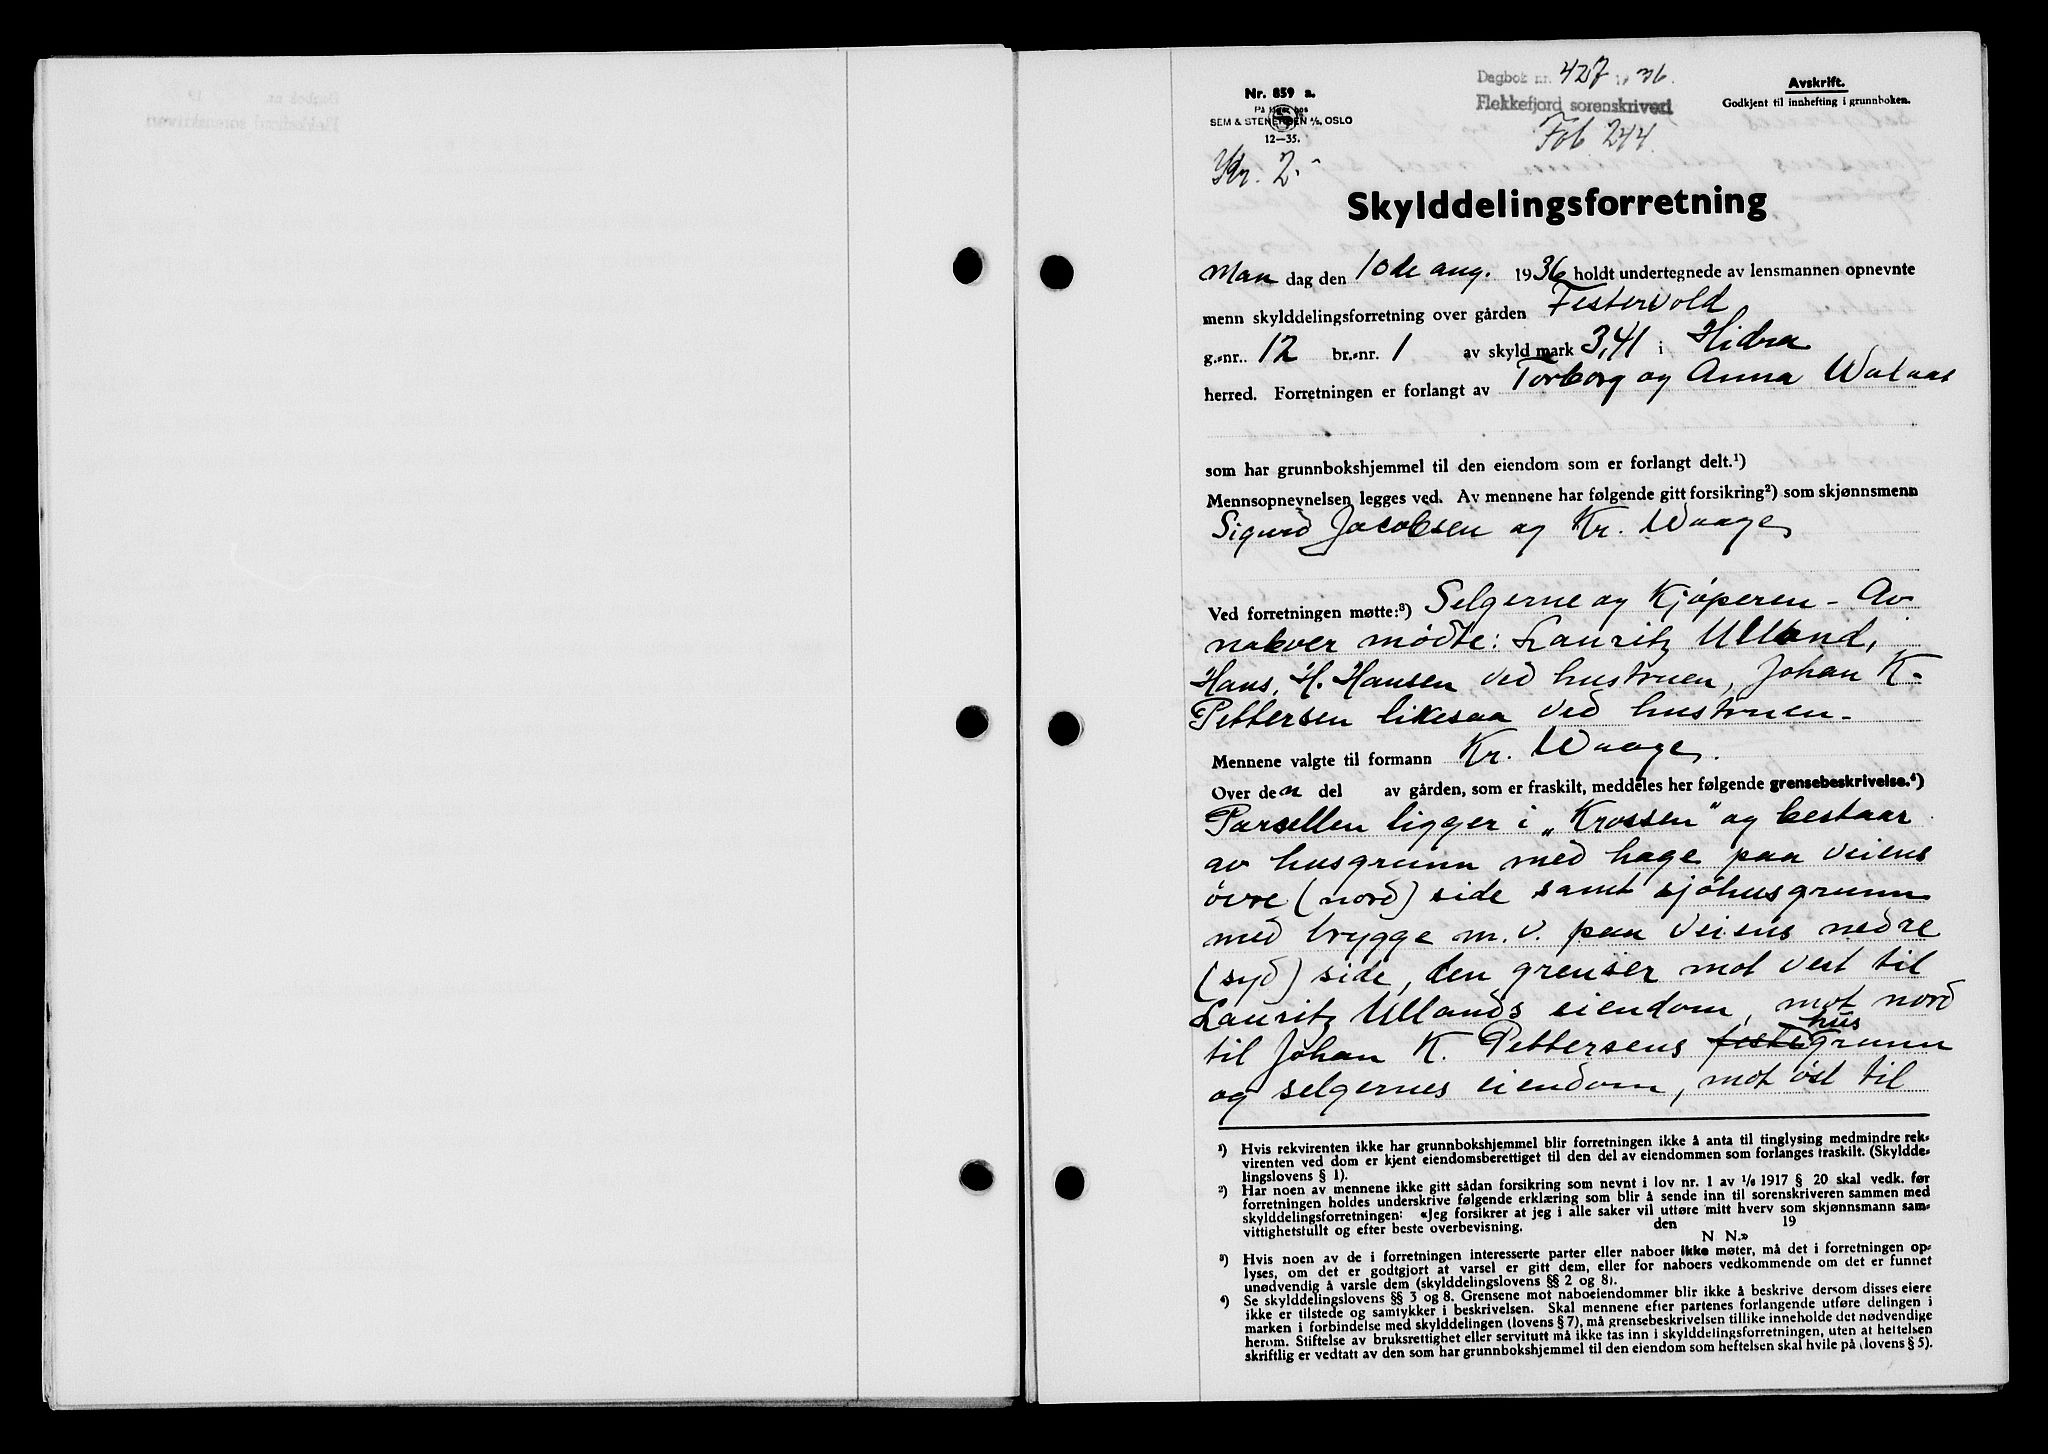 Nr. 859 a.
På lager hos
SEM & STENERSEN A/S, OSLO
12—35.
Dagbok nr. 427 1936.
Flekkefjord sorenskriveri
Fol 244.
Avskrift.
Godkjent til innhefting i grunnboken.
Kr. 2.-
Skylddelingsforretning
Man dag den 10de aug. 1936 holdt undertegnede av lensmannen opnevnte
menn skylddelingsforretning over gården Festervold
g.-nr. 12 br.-nr. 1 av skyld mark 3,41 i Hidra
herred. Forretningen er forlangt av Torborg og Anna Walaas
som har grunnbokshjemmel til den eiendom som er forlangt delt.¹)
Mennsopnevnelsen legges ved. Av mennene har følgende gitt forsikring²) som skjønnsmenn
Sigurd Jacobsen og Kr. Waage
Ved forretningen møtte:³) Selgerne og Kjøperen - Av
naboer mødte: Lauritz Ulland,
Hans. H. Hansen ved hustruen, Johan K.
Pettersen likesaa ved hustruen.
Mennene valgte til formann Kr. Waage.
Over den del av gården, som er fraskilt, meddeles her følgende grensebeskrivelse.⁴)
Parsellen ligger i „Krossen" og bestaar
av husgrunn med hage paa veiens
øvre (nord) side samt sjøhusgrunn
med brygge m.v. paa veiens nedre
(syd) side, den grenser mot vest til
Lauritz Ullands eiendom, mot nord
til Johan K. Pettersens feste husgrunn
og selgernes eiendom, mot øst til
¹) Hvis rekvirenten ikke har grunnbokshjemmel blir forretningen ikke å anta til tinglysing medmindre rek-
virenten ved dom er kjent eiendomsberettiget til den del av eiendommen som forlanges fraskilt. (Skyldde-
lingslovens § 1).
²) Har noen av mennene ikke gitt sådan forsikring som nevnt i lov nr. 1 av 1/6 1917 § 20 skal vedk. før
forretningen holdes underskrive følgende erklæring som blir å sende inn til sorenskriveren sammen med
skylddelingsforretningen: «Jeg forsikrer at jeg i alle saker vil utføre mitt hverv som skjønnsmann sam-
vittighetsfullt og efter beste overbevisning. den 19
N N.»
³) Hvis noen av de i forretningen interesserte parter eller naboer ikke møter, må det i forretningen op-
lyses, om det er godtgjort at varsel er gitt dem, eller for naboers vedkommende om det er funnet
unødvendig å varsle dem (skylddelingslovens §§ 2 og 8).
⁴) Se skylddelingslovens §§ 3 og 8. Grensene mot naboeiendommer blir ikke å beskrive dersom disses eiere
ikke er tilstede og samtykker i beskrivelsen. Skal mennene efter partenes forlangende utføre delingen i
marken i forbindelse med skylddelingen (lovens § 7), må grensebeskrivelsen tillike inneholde det nødvendige
herom. Stiftelse av bruksrettighet eller servitutt må ikke tas inn i skylddelingsforretningen, uten at heftelsen
skriftlig er vedtatt av den som har grunnbokshjemmel til den eiendom som heftelsen skal hvile på (lovens § 5).